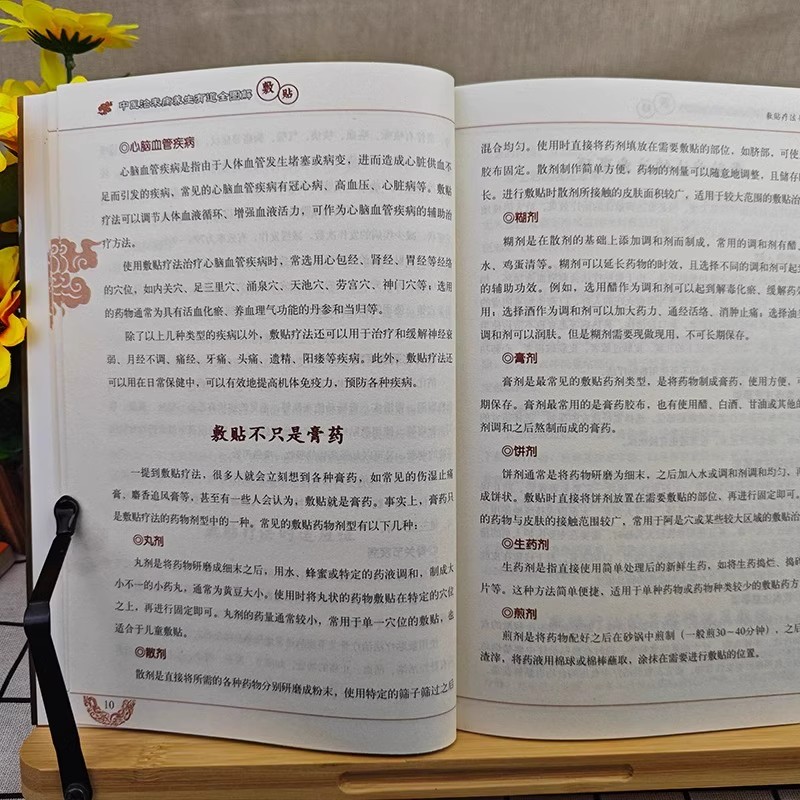 中医治未病养生有道全图解 敷贴
◎心脑血管疾病
心脑血管疾病是指由于人体血管发生堵塞或病变，进而造成心脑供血不
足而引发的疾病，常见的心脑血管疾病有冠心病、高血压、心脏病等。敷贴
疗法可以调节人体血液循环、增强血液活力，可作为心脑血管疾病的辅助治
疗方法。
使用敷贴疗法治疗心脑血管疾病时，常选用心包经、肾经、胃经等经络
的穴位，如内关穴、足三里穴、涌泉穴、天池穴、劳宫穴、神门穴等；选用
的药物通常为具有活血化瘀、养血理气功能的丹参和当归等。
除了以上几种类型的疾病以外，敷贴疗法还可以用于治疗和缓解神经衰
弱、月经不调、痛经、牙痛、头痛、遗精、阳痿等疾病。此外，敷贴疗法还
可以用在日常保健中，可以有效地提高机体免疫力，预防各种疾病。
敷贴不只是膏药
一提到敷贴疗法，很多人就会立刻想到各种膏药，如常见的伤湿止痛
膏、麝香追风膏等，甚至有一些人会认为，敷贴就是膏药。事实上，膏药只
是敷贴疗法的药物剂型中的一种。常见的敷贴药物剂型有以下几种：
◎丸剂
丸剂是将药物研磨成细末之后，用水、蜂蜜或特定的药液调和，制成大
小不一的小药丸，通常为黄豆大小。使用时将丸状的药物敷贴在特定的穴位
之上，再进行固定即可。丸剂的药量通常较小，常用于单一穴位的敷贴，也
适合于儿童敷贴。
◎散剂
散剂是直接将所需的各种药物分别研磨成粉末，使用特定的筛子筛过之后
10
敷贴疗法
混合均匀。使用时直接将药剂填放在需要敷贴的部位，如脐部，可使
胶布固定。散剂制作简单方便，药物的剂量可以随意地调整，且储存
长。进行敷贴时散剂所接触的皮肤面积较广，适用于较大范围的敷贴治
◎糊剂
糊剂是在散剂的基础上添加调和剂而制成，常用的调和剂有醋、
水、鸡蛋清等。糊剂可以延长药物的时效，且选择不同的调和剂可起
的辅助功效。例如，选用醋作为调和剂可以起到解毒化瘀、缓解药
用；选择酒作为调和剂可以加大药力、通经活络、消肿止痛；选择油
调和剂可以润肤。但是糊剂需要现做现用，不可长期保存。
◎膏剂
膏剂是最常见的敷贴药剂类型，是将药物制成膏药，使用方便，可
期保存。膏剂最常用的是膏药胶布，也有使用醋、白酒、甘油或其他的
剂调和之后熬制而成的膏药。
◎饼剂
饼剂通常是将药物研磨为细末，之后加入水或调和剂调和均匀，再
成饼状。敷贴时直接将饼剂放置在需要敷贴的部位，再进行固定即可。
的药物与皮肤的接触范围较广，常用于阿是穴或某些较大区域的敷贴治
◎生药剂
生药剂是指直接使用简单处理后的新鲜生药，如将生药捣烂、捣碎
片等。这种方法简单便捷，适用于单种药物或药物种类较少的敷贴药方
◎煎剂
煎剂是将药物配好之后在砂锅中煎制（一般煎30～40分钟），之后
渣滓，将药液用棉球或棉棒蘸取，涂抹在需要进行敷贴的位置。